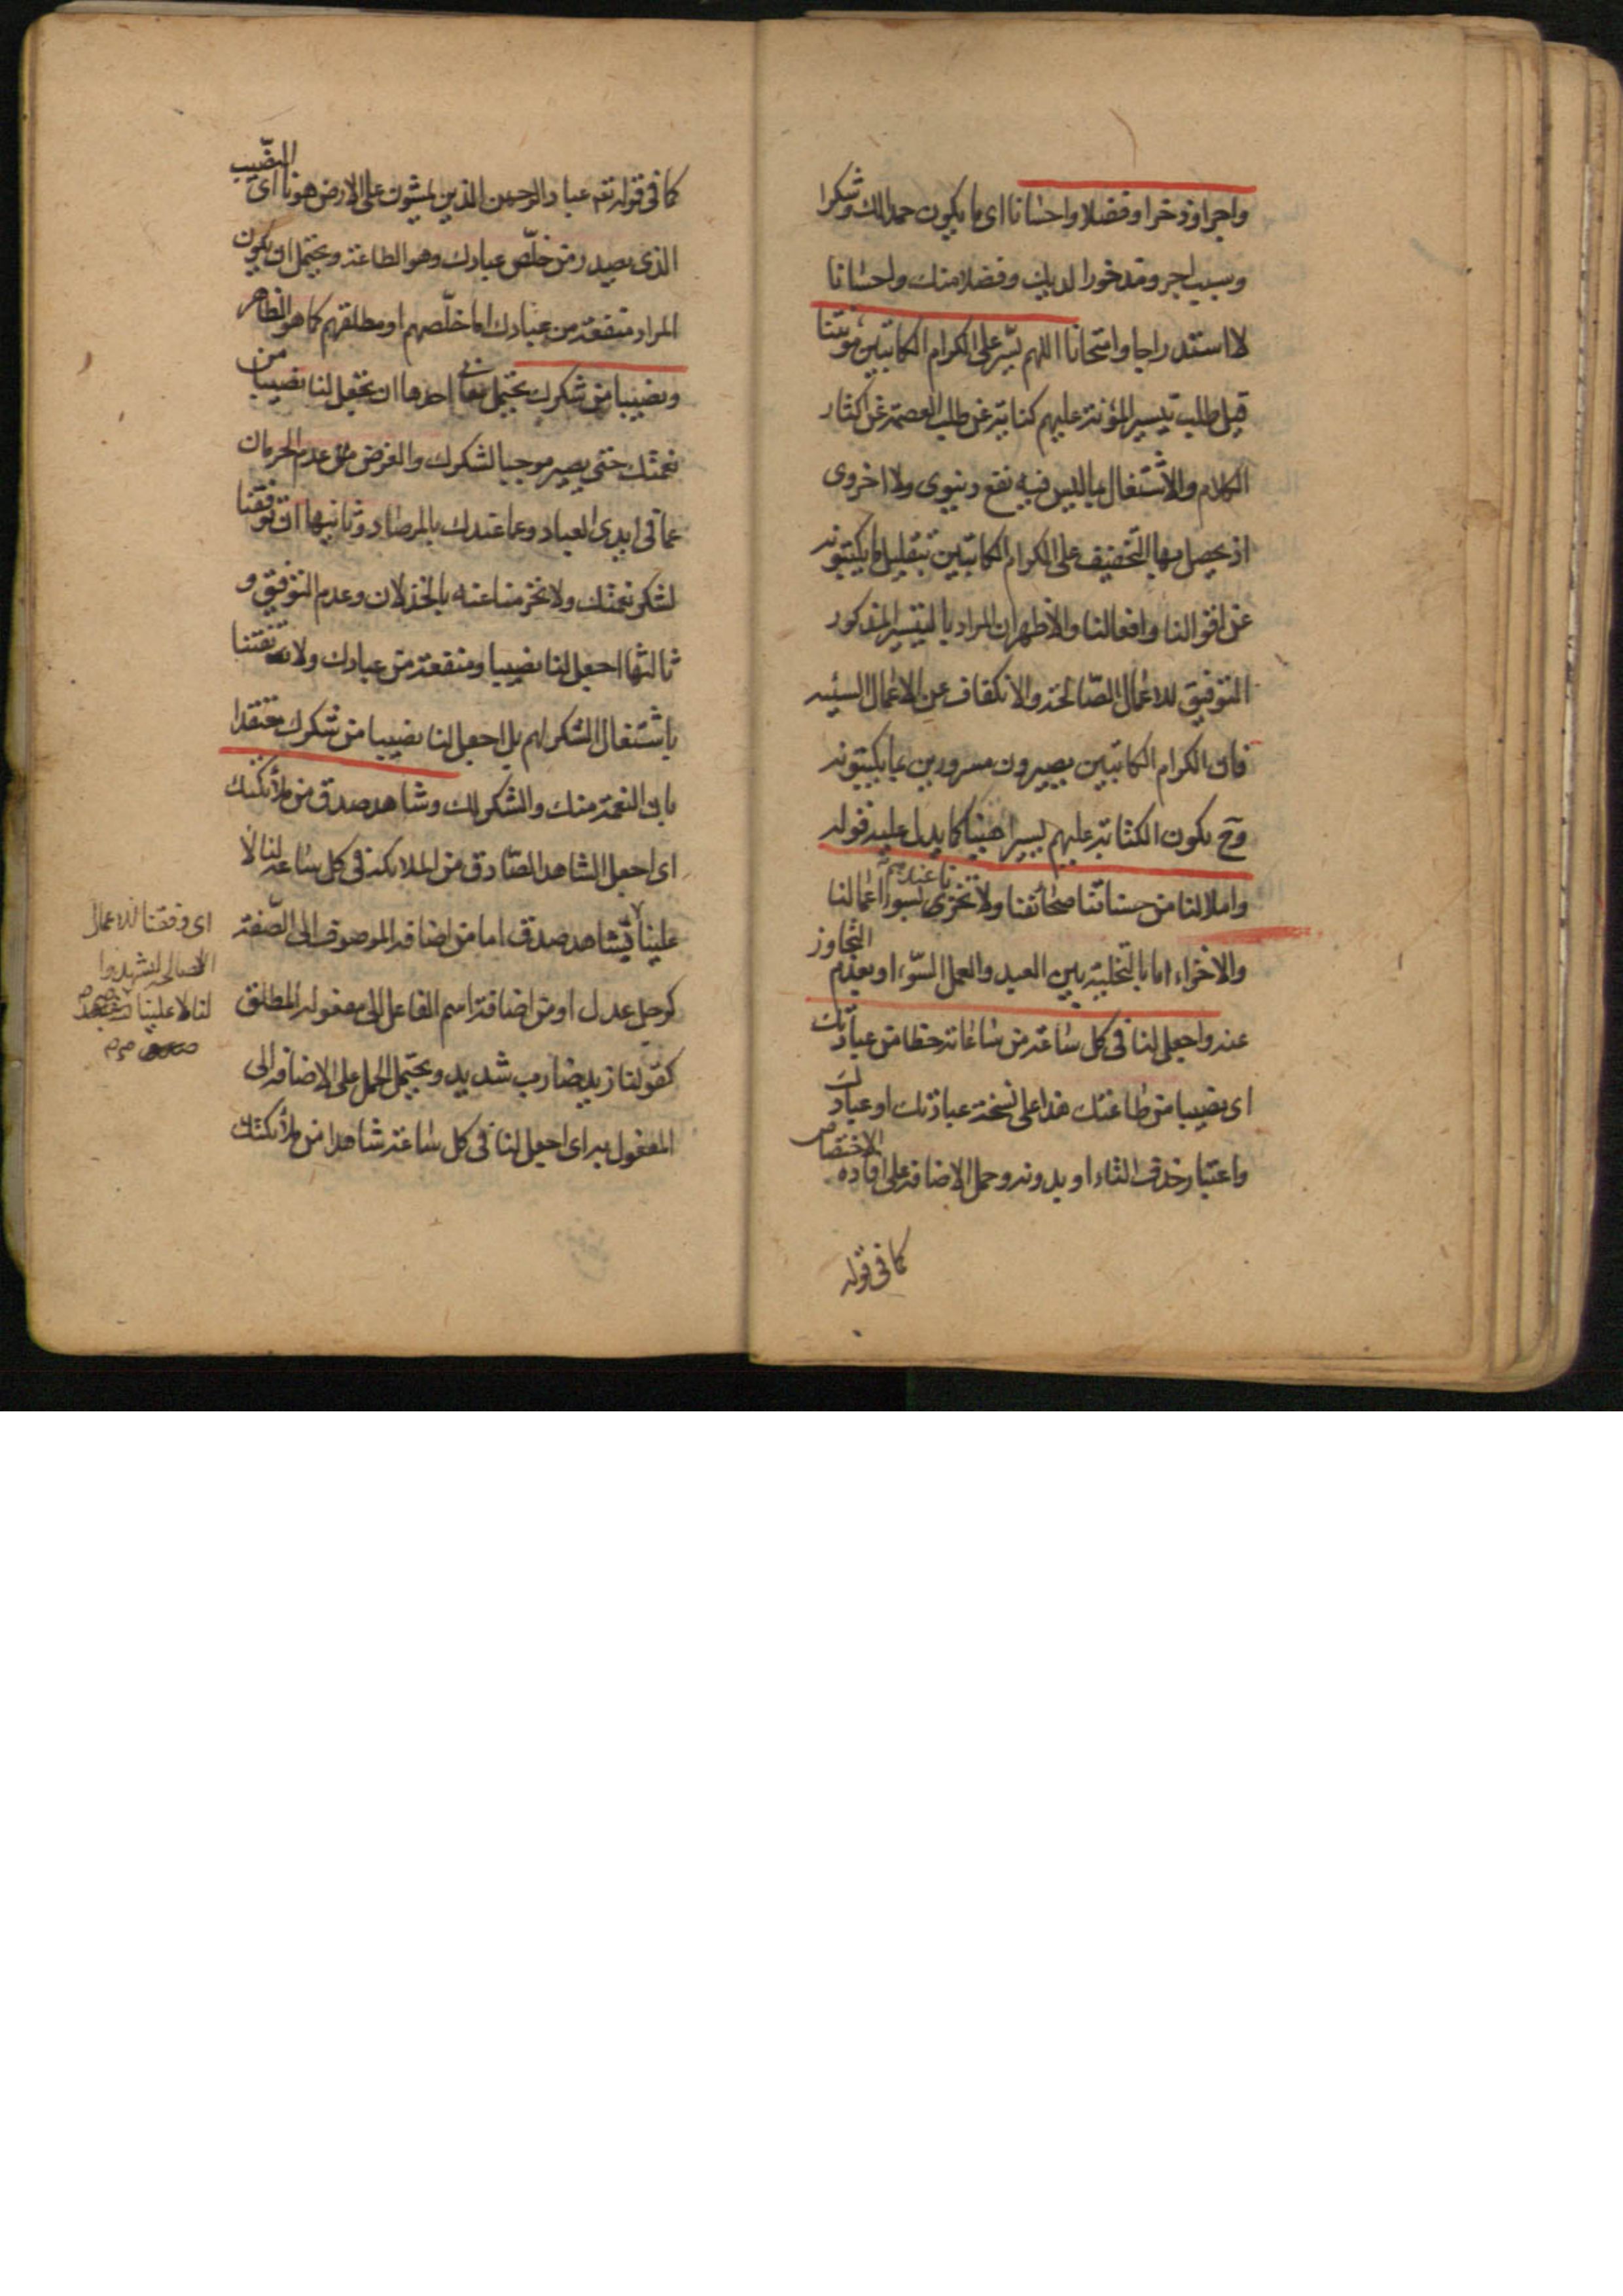 واجرا وذخرا وفضلا واحسانا اى ما يكون حمدا لك وشكرا
وسبب اجر ومذخورا لديك وفضلا منك واحسانا
لا استدراجا وامتحانا اللهم يسّر على الكرام الكاتبين مؤنتنا
قيل طلب تيسير المؤنة عليهم كناية عن طلب العصمة عن اكثار
الكلام والاشتغال بما ليس فيه نفع دنيوى ولا اخروى
اذ يحصل بها التخفيف على الكرام الكاتبين بتقليل ما يكتبونه
من اقوالنا وافعالنا والاظهر ان المراد بالتيسير المذكور
التوفيق للاعمال الصّالحة والانكفاف عن الاعمال السيئة
فان الكرام الكاتبين يصيرون مسرورين بما يكتبونه
وح يكون الكتابة عليهم يسيرا هنيا كما يدل عليه قوله
واملا لنا من حسناتنا صحائفنا ولا تخزنا عندهم بسوء اعمالنا
والاخزاء اما بالتخلية بين العبد والعمل السّوء او بعدم التجاوز
عنه واجعل لنا فى كل ساعة من ساعاته حظا من عبادتك
اى نصيبا من طاعتك هذا على نسخة عبادتك او عبادك
واعتبار حذف التاء او بدونه وحمل الاضافة على افادة الاختصاص
كما فى قوله
كما فى قوله تعم عباد الرحمن الذين يمشون على الارض هونا اى النصّيب
الذى يصدر من خلّص عبادك وهو الطاعة ويحتمل ان يكون
المراد منفعة من عبادك اما خلّصهم او مطلقهم كما هو الظاهر
ونصيبا من شكرك يحتمل معانى احدها ان تجعل لنا نصيبا من
نعمتك حتى يصير موجبا لشكرك والغرض عدم الحرمان
عما فى ايدى العباد وعما عندك بالمرصاد وثانيها ان توفقنا
لشكر نعمتك ولا تحرمنا عنه بالخذلان وعدم التوفيق و
ثالثها اجعل لنا نصيبا ومنفعة من عبادك ولا
باشتغال الشكر لهم بل اجعل لنا نصيبا من شكرك معتقدا
بان النعمة منك والشكر لك وشاهد صدق من ملائكتك
اى اجعل الشاهد الصّادق من الملائكة فى كل ساعة لنا لا
علينا فشاهد صدق اما من اضافة الموصوف الى الصّفة
كرجل عدل او من اضافة اسم الفاعل الى مفعوله المطلق
كقولنا زيد ضارب شديد ويحتمل الحمل على الاضافة الى
المفعول به اى اجعل لنا فى كل ساعة شاهدا من ملائكتك
اى وفقنا للاعمال
الصالحة ليشهدوا
لنا لا علينا